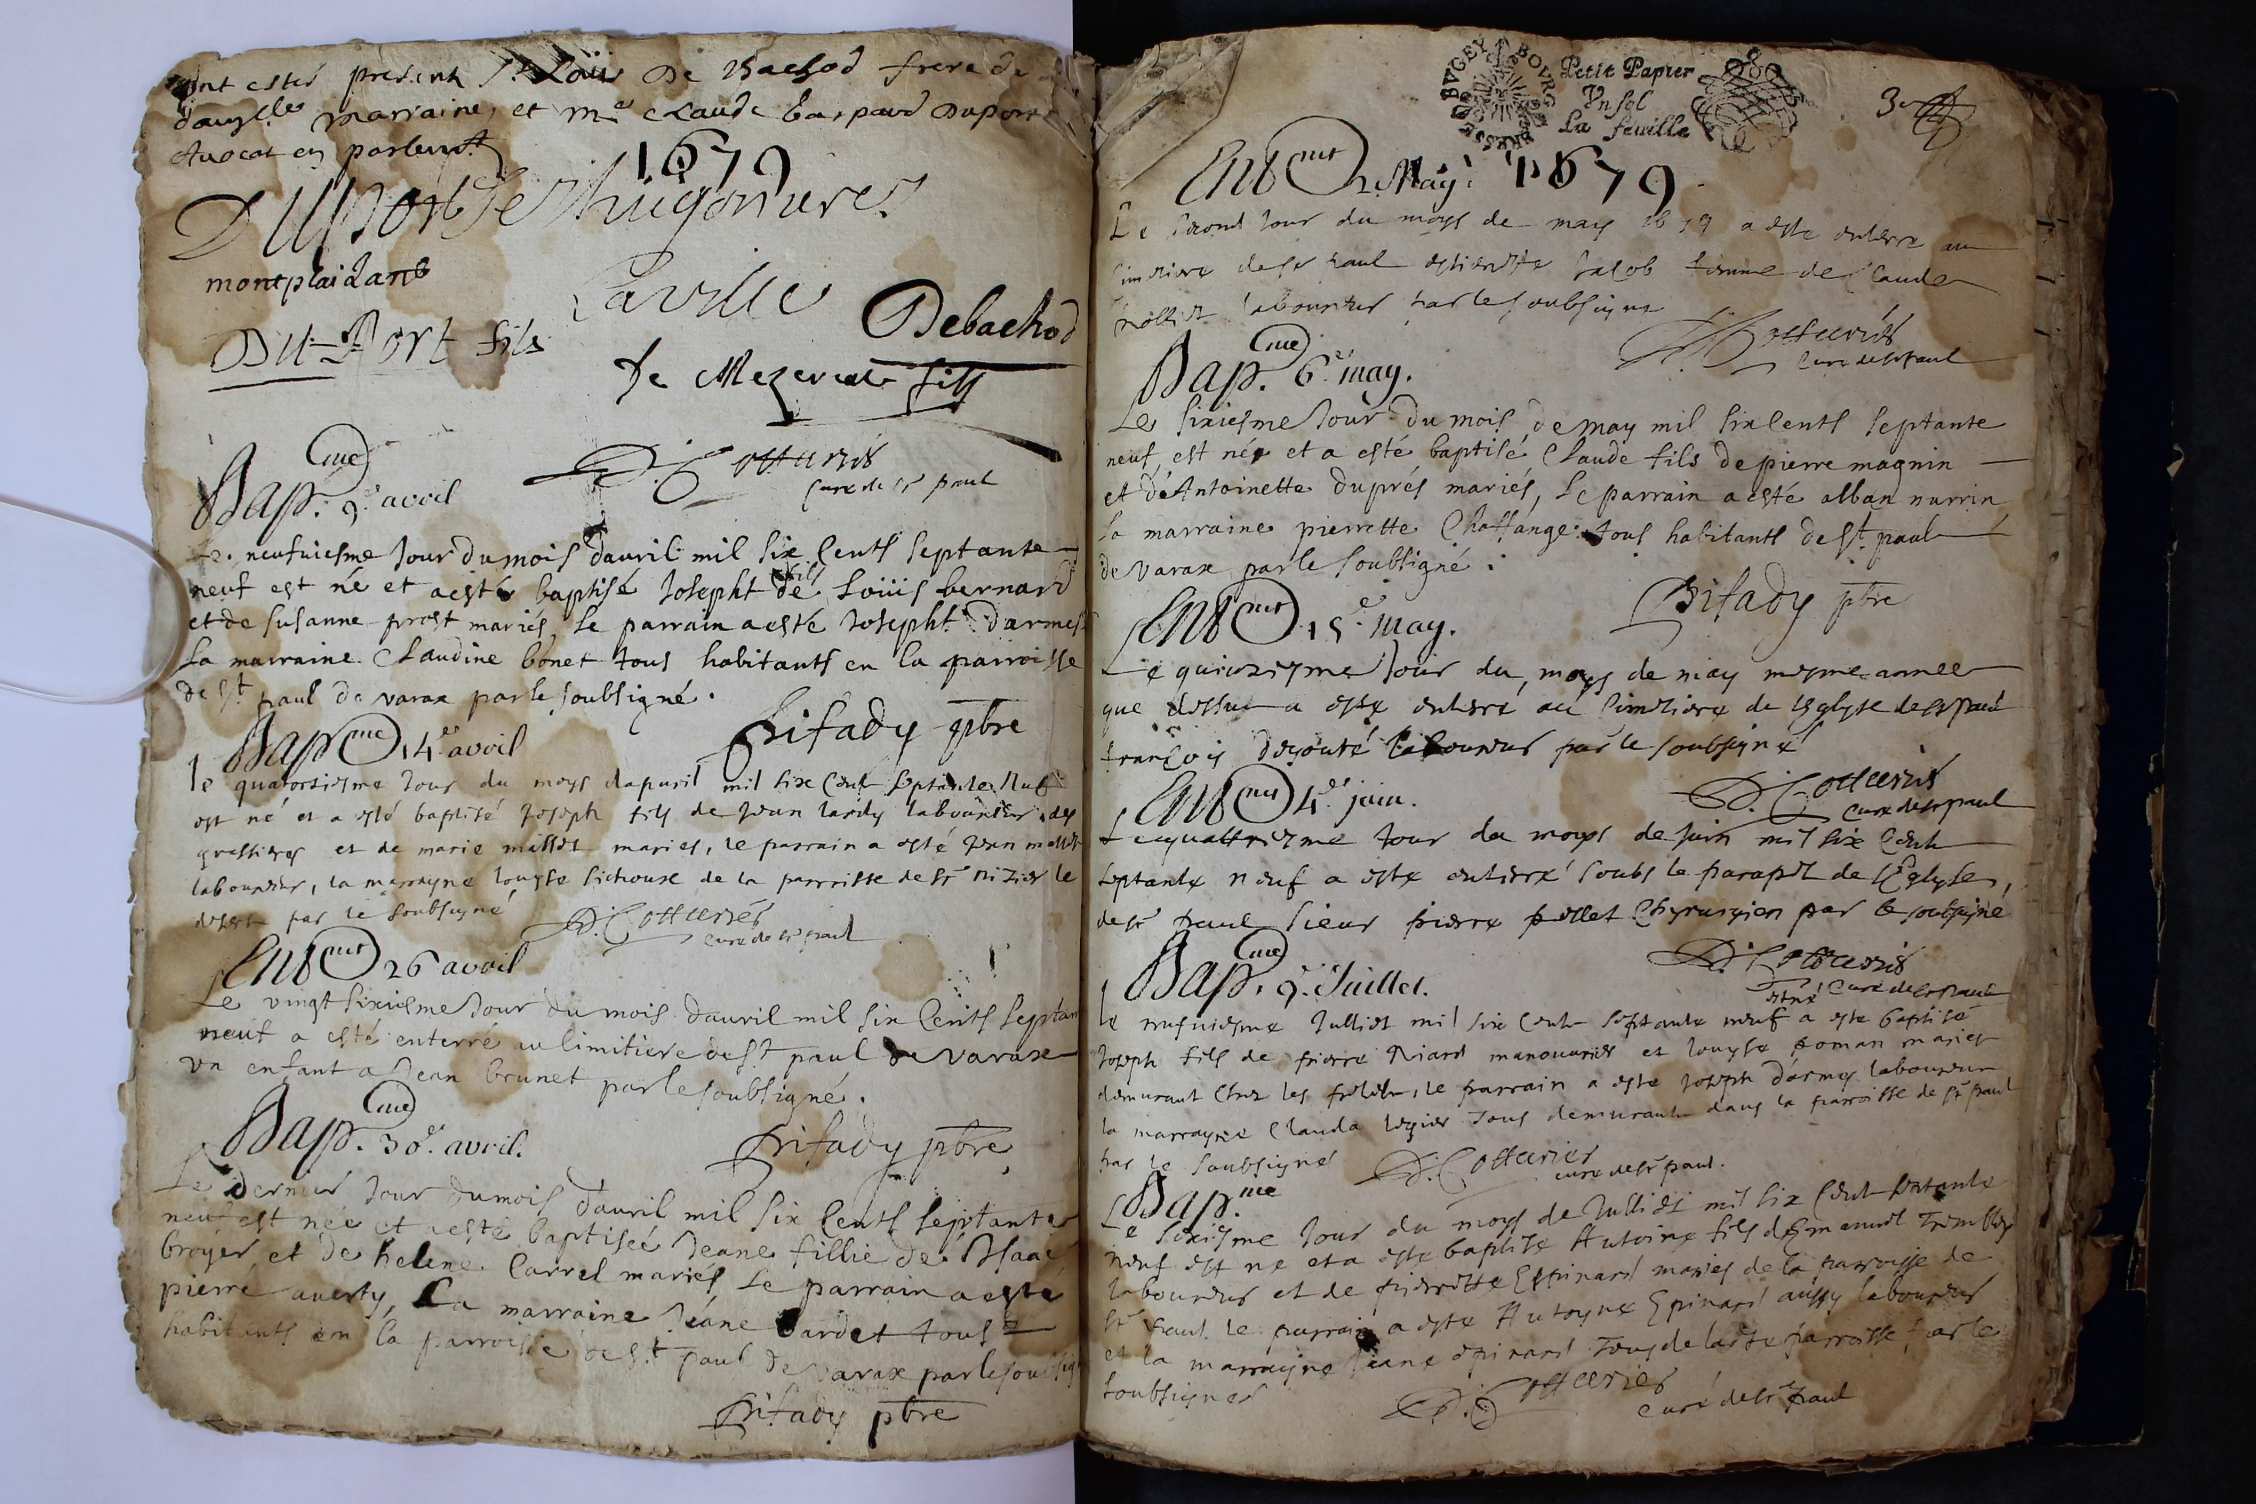 ont estés present Sr Loüis De Bachod frere de
marraine, et Me Claude Gaspard Duport
Avocat en parlemt
1679
Duport De
montplaisant
Laville
Debachod
Du-Port fils
De Mezeriat fils
D. Cotturies
curé de st paul
Bap.me 9e. avril
Le neufuiesme Jour du mois d'auril mil six Cents septante
neuf est né et a esté baptisé Josepht fils de Loüis bernard
et de susanne prost mariés, Le parrain a esté Josepht Darmes
La marraine Claudine bonet tous habitants en la parroisse
de st paul de varax par le soubsigné.
Bap.me 14e avril
Le quatorsiesme Jour du moys dapuril mil six Cent septante Neuf
est né et a esté baptisé Joseph fils de Jean tardy laboureur des
et de marie mariés, le parrain a esté Jean
laboureur, la marrayne louyse de la parroisse de st nizier le
desert par le soubsigné
D. Cotturies
curé de st paul
Ent.mt 26 avril
Le vingt sixiesme Jour du mois dauril mil six Cents septante
neuf a esté enterré au simitiere de st paul de varax
vn enfant a Jean brunet par le soubsigné.
pbre
Bap.me 30e. avril.
Le dernier Jour du mois d'auril mil six Cents septante
neuf est née et a esté baptisée Jeane fillie de Isaac
broyer et de helene Carrel mariés, Le parrain a esté
pierre auerty, La marraine Jeane tous
habitants en la parroisse de st paul de varax par le soubsigné
pbre
BRESSE BVGEY BOVRG
Petit Papier
Vn sol
La feuille
Ent.mt 2 May. 1679
Le second Jour du moys de may 1679 a esté enterré au
simetiere de st paul Jacob femme de Claude
laboureur par le soubsigné
D. Cotturies
curé de st paul
Bap.me 6e. may.
Le sixiesme Jour du mois de may mil six Cents septante
neuf, est né et a esté baptisé Claude fils de pierre magnin
et de Antoinette duprés mariés, Le parrain a esté alban nurrin
la marraine pierrette Chaffange tous habitants de st paul
de varax par le soubsigné.
pbre
Ent.mt 15e. may.
Le quinziesme Jour du moys de may mesme annee
que dessus a esté enterré au simetiere de leglyse de st paul
françois laboureur par le soubsigné
D. Cotturies
curé de st paul
Ent.mt 4e. juin.
Le quattriesme Jour du moys de Juin mil six Cent
septante neuf a esté enterré soubs le parapet de l'Eglyse,
de st paul sieur pierre pillet Chyrurgien par le soubsigné
D. Cotturies
curé de st paul
Bap.me 9e. Juillet.
Le neufuiesme Julliet mil six Cent septante neuf a esté baptisé
Joseph fils de pierre Riard manouurier et louyse poman maries
demurant Chez les le parrain a esté Joseph darmes laboureur
la marrayne Clauda legier Tous demurants dans la parroisse de st paul
par le soubsigné
D. Cotturies
curé de st paul.
Bap.me
Le sixiesme Jour du moys de Julliet mil six Cent septante
neuf est né et a esté baptisé Antoine fils d'Emanuel Tremblay
laboureur et de pierrette Espinard maries de la parroisse de
st paul. le parrain a esté Antoyne Epinard aussy laboureur
et la marrayne Jeane epinard Tous de la parroisse, par le
soubsigné
D. Cotturies
curé de st paul